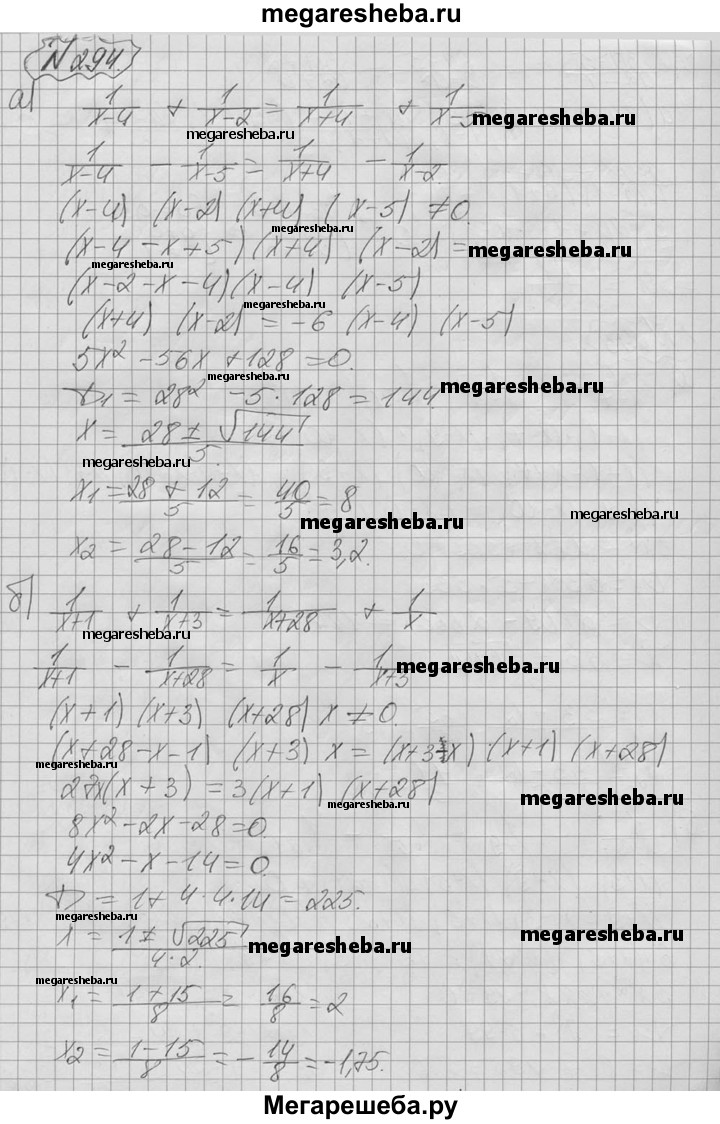 megaresheba.ru
N 294.
а) 1/(x-4) + 1/(x-2) = 1/(x+4) + 1/(x-5 megaresheba.ru
megaresheba.ru
1/(x-4) - 1/(x-5) = 1/(x+4) - 1/(x-2)
megaresheba.ru
(x-4) (x-2) (x+4) (x-5) ≠ 0.
megaresheba.ru
(x-4-x+5) (x+4) (x-2) = megaresheba.ru
megaresheba.ru
(x-2-x-4)(x-4) (x-5)
megaresheba.ru
(x+4) (x-2) = -6 (x-4) (x-5)
5x² - 56x + 128 = 0.
megaresheba.ru
D₁ = 28² - 5 · 128 = 144 megaresheba.ru
x = (28 ± √144)/5.
megaresheba.ru
x₁ = (28 + 12)/5 = 40/5 = 8
megaresheba.ru megaresheba.ru
x₂ = (28 - 12)/5 = 16/5 = 3,2.
б) 1/(x+1) + 1/(x+3) = 1/(x+28) + 1/x
megaresheba.ru
1/(x+1) - 1/(x+28) = 1/x - 1/(x+3 megaresheba.ru
(x+1) (x+3) (x+28) x ≠ 0.
(x+28-x-1) (x+3) x = (x+3-x) (x+1) (x+28)
megaresheba.ru
27x(x+3) = 3(x+1) (x+28)
megaresheba.ru megaresheba.ru
8x² - 2x - 28 = 0.
4x² - x - 14 = 0.
D = 1 + 4·4·14 = 225.
megaresheba.ru
x = (1 ± √225)/(4·2) megaresheba.ru megaresheba.ru
megaresheba.ru
x₁ = (1 + 15)/8 = 16/8 = 2
x₂ = (1 - 15)/8 = -14/8 = -1,75.
Мегарешеба.ру